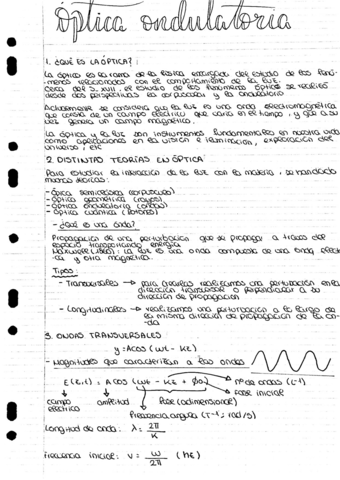 Óptica ondulatoria
1. ¿QUÉ ES LA ÓPTICA?:
La óptica es la rama de la física encargada del estudio de los fenó-
-menos relacionados con el comportamiento de la luz.
Cerca del S. XVII, el estudio de los fenómenos ópticos se realizó
desde dos perspectivas la corpuscular y la ondulatoria
Actualmente se considera que la luz es una onda electromagnética
que consta de un campo eléctrico que varía en el tiempo, y que a su
vez genera un campo magnético.
La óptica y la luz son instrumentos fundamentales en nuestra vida
como aplicaciones en la visión e iluminación, exploración del
universo, etc
2. DISTINTAS TEORÍAS EN ÓPTICA
Para estudiar la interacción de la luz con la materia, se han dado
muchas teorías:
- Óptica (corpúsculos)
- Óptica geométrica (rayos)
- Óptica ondulatoria (ondas)
- Óptica cuántica (fotones)
- ¿Qué es una onda?
Propagación de una perturbación que se propaga a través del
espacio transportando energía
: La luz es una onda compuesta de una onda eléctri-
-ca y otra magnética.
Tipos:
- Transversales → para crearlas realizamos una perturbación en la
dirección transversal o perpendicular a su
dirección de propagación
- Longitudinales → realizamos una perturbación a lo largo de
la misma dirección de propagación de la on-
-da
3. ONDAS TRANSVERSALES
y = A cos (ωt - kz)
- Magnitudes que caracterizan a las ondas
E(z,t) = A cos (ωt - kz + ϕ₀) → nº de ondas (L⁻¹)
fase inicial
campo amplitud fase (adimensional)
eléctrico
frecuencia angular (T⁻¹; rad/s)
Longitud de onda: λ = 2π/k
Frecuencia inicial: ν = ω/2π (Hz)